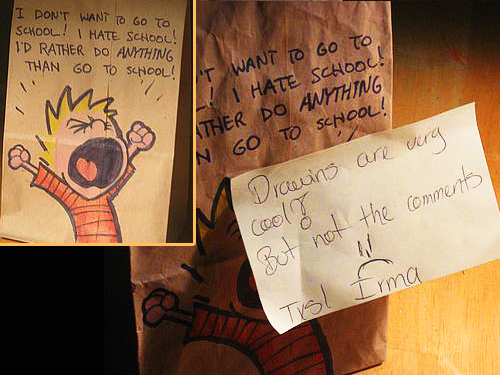 I DON'T WANT TO GO TO
SCHOOL! I HATE SCHOOL!
I'D RATHER DO ANYTHING
THAN GO TO SCHOOL!
'T WANT TO GO TO
L! I HATE SCHOOL!
ATHER DO ANYTHING
N GO TO SCHOOL!
Drawins are very
cool
But not the comments
Irma